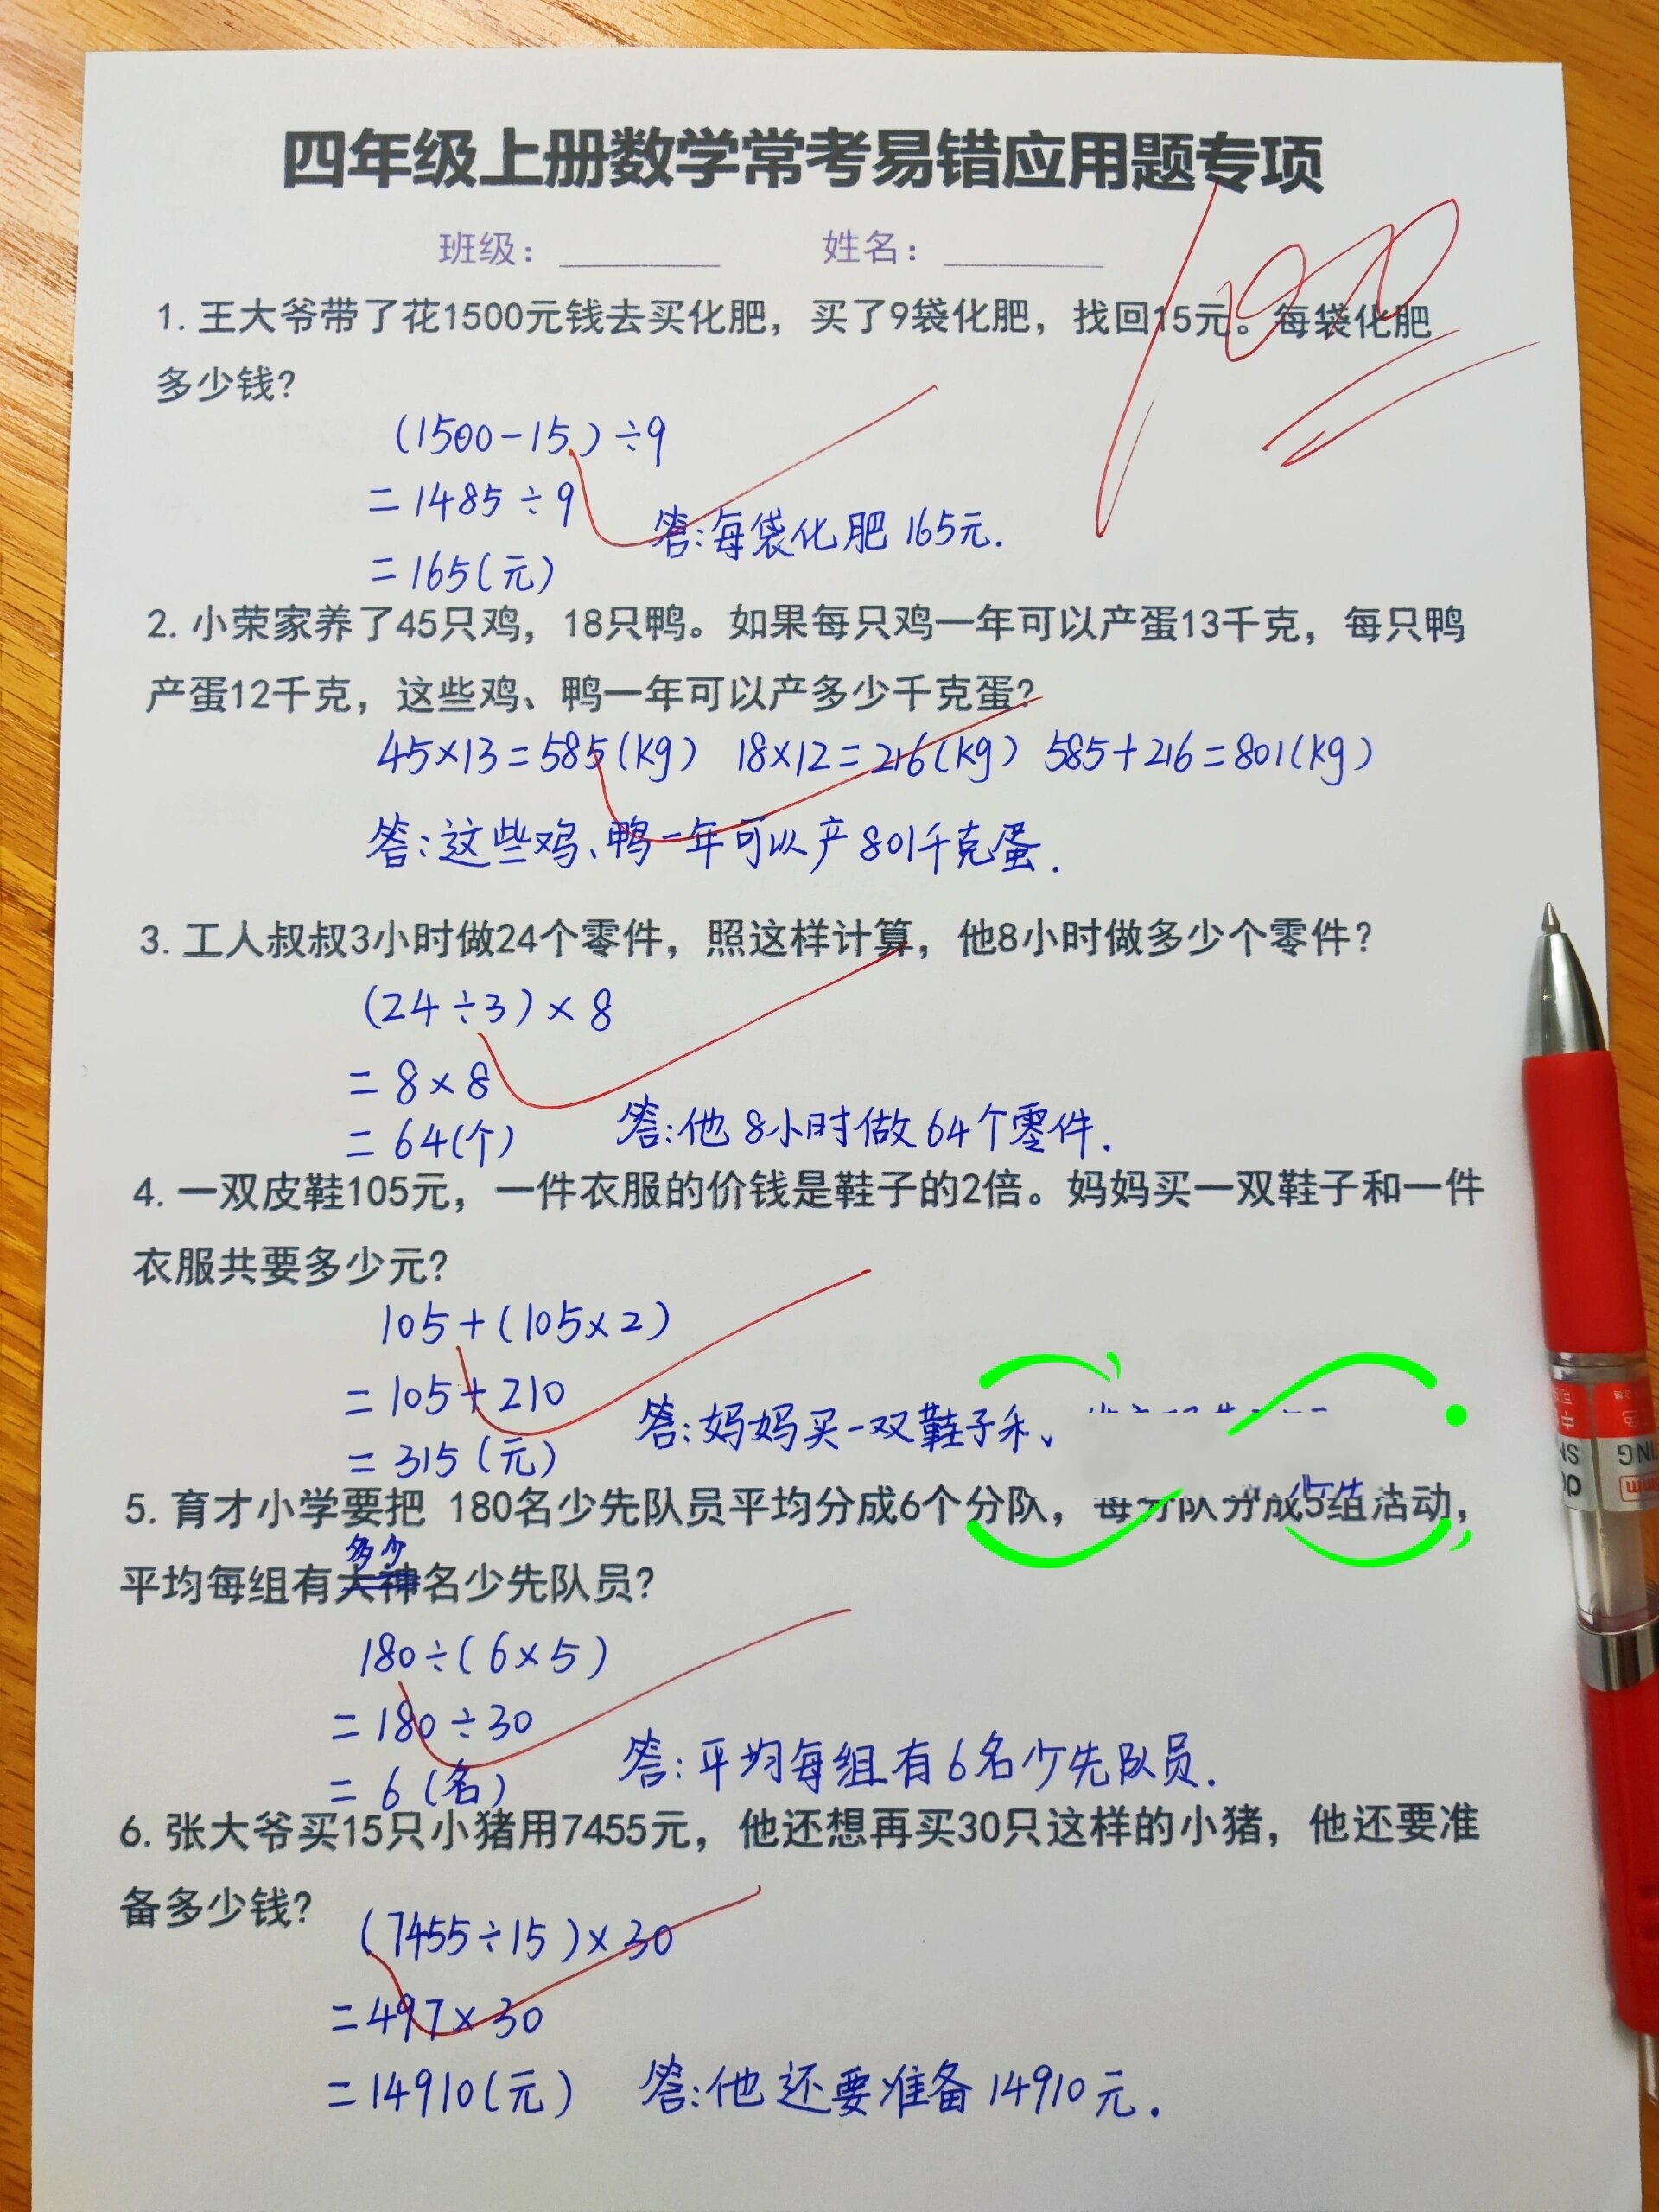 四年级上册数学常考易错应用题专项
班级：________ 姓名：________
100
1. 王大爷带了花1500元钱去买化肥，买了9袋化肥，找回15元。每袋化肥
多少钱？
(1500-15)÷9
=1485÷9
=165(元)
答:每袋化肥165元.
2. 小荣家养了45只鸡，18只鸭。如果每只鸡一年可以产蛋13千克，每只鸭
产蛋12千克，这些鸡、鸭一年可以产多少千克蛋？
45×13=585(kg) 18×12=216(kg) 585+216=801(kg)
答:这些鸡、鸭一年可以产801千克蛋.
3. 工人叔叔3小时做24个零件，照这样计算，他8小时做多少个零件？
(24÷3)×8
=8×8
=64(个)
答:他8小时做64个零件.
4. 一双皮鞋105元，一件衣服的价钱是鞋子的2倍。妈妈买一双鞋子和一件
衣服共要多少元？
105+(105×2)
=105+210
=315(元)
答:妈妈买一双鞋子
5. 育才小学要把 180名少先队员平均分成6个分队，每分队分成5组活动，
多少
平均每组有大神名少先队员？
180÷(6×5)
=180÷30
=6(名)
答:平均每组有6名少先队员.
6. 张大爷买15只小猪用7455元，他还想再买30只这样的小猪，他还要准
备多少钱？
(7455÷15)×30
=497×30
=14910(元)
答:他还要准备14910元.